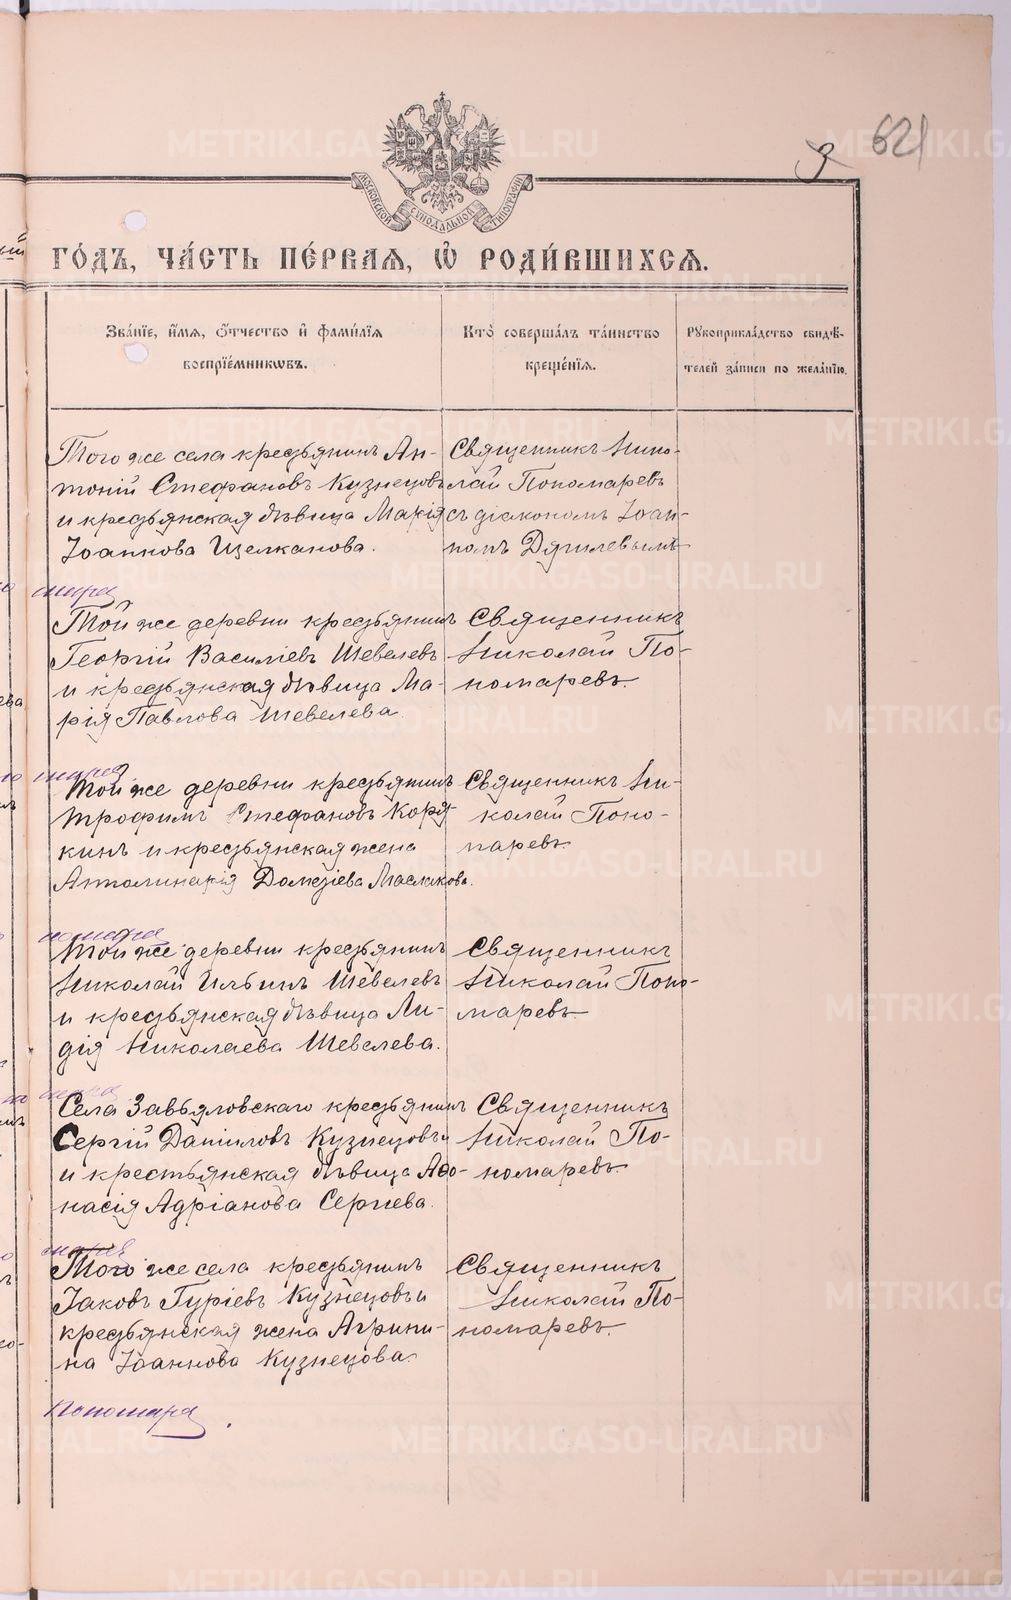 621
МОСКОВСКОЙ СѴНОДАЛЬНОЙ ТИПОГРАФІИ
ГО́ДЪ, ЧА́СТЬ ПЕ́РВАѦ, Ѽ РОДИ́ВШИХСѦ.
Зва́нїе, и҆́мѧ, ѻ҆́тчество и҆ фами́лїѧ
воспрїе́мникѡвъ.
Кто̀ соверша́лъ та́инство
креще́нїѧ.
Рꙋкоприкла́дство свидѣ́-
телей за́писи по жела́нїю.
Того же села крестьянинъ Ан-
тоній Стефановъ Кузнецовъ
и крестьянская дѣвица Марія
Іоаннова Щелканова.
Священникъ Нико-
лай Пономаревъ
съ діакономъ Іоан-
номъ Дягилевымъ
Той же деревни крестьянинъ
Георгій Василіевъ Шевелевъ
и крестьянская дѣвица Ма-
рія Павлова Шевелева.
Священникъ
Николай По-
номаревъ.
Той же деревни крестьянинъ
Трофимъ Стефановъ Коря-
кинъ и крестьянская жена
Аполинарія Дометіева Маслакова.
Священникъ Ни-
колай Поно-
маревъ.
Той же деревни крестьянинъ
Николай Ильинъ Шевелевъ
и крестьянская дѣвица Ли-
дія Николаева Шевелева.
Священникъ
Николай Поно-
маревъ.
Села Завьяловскаго крестьянинъ
Сергій Даніиловъ Кузнецовъ и
и крестьянская дѣвица Афо-
насія Адріанова Сергѣева.
Священникъ
Николай По-
номаревъ
Того же села крестьянинъ
Іаковъ Гуріевъ Кузнецовъ и
крестьянская жена Агрипи-
на Іоаннова Кузнецова.
Священникъ
Николай По-
номаревъ.
METRIKI.GASO-URAL.RU